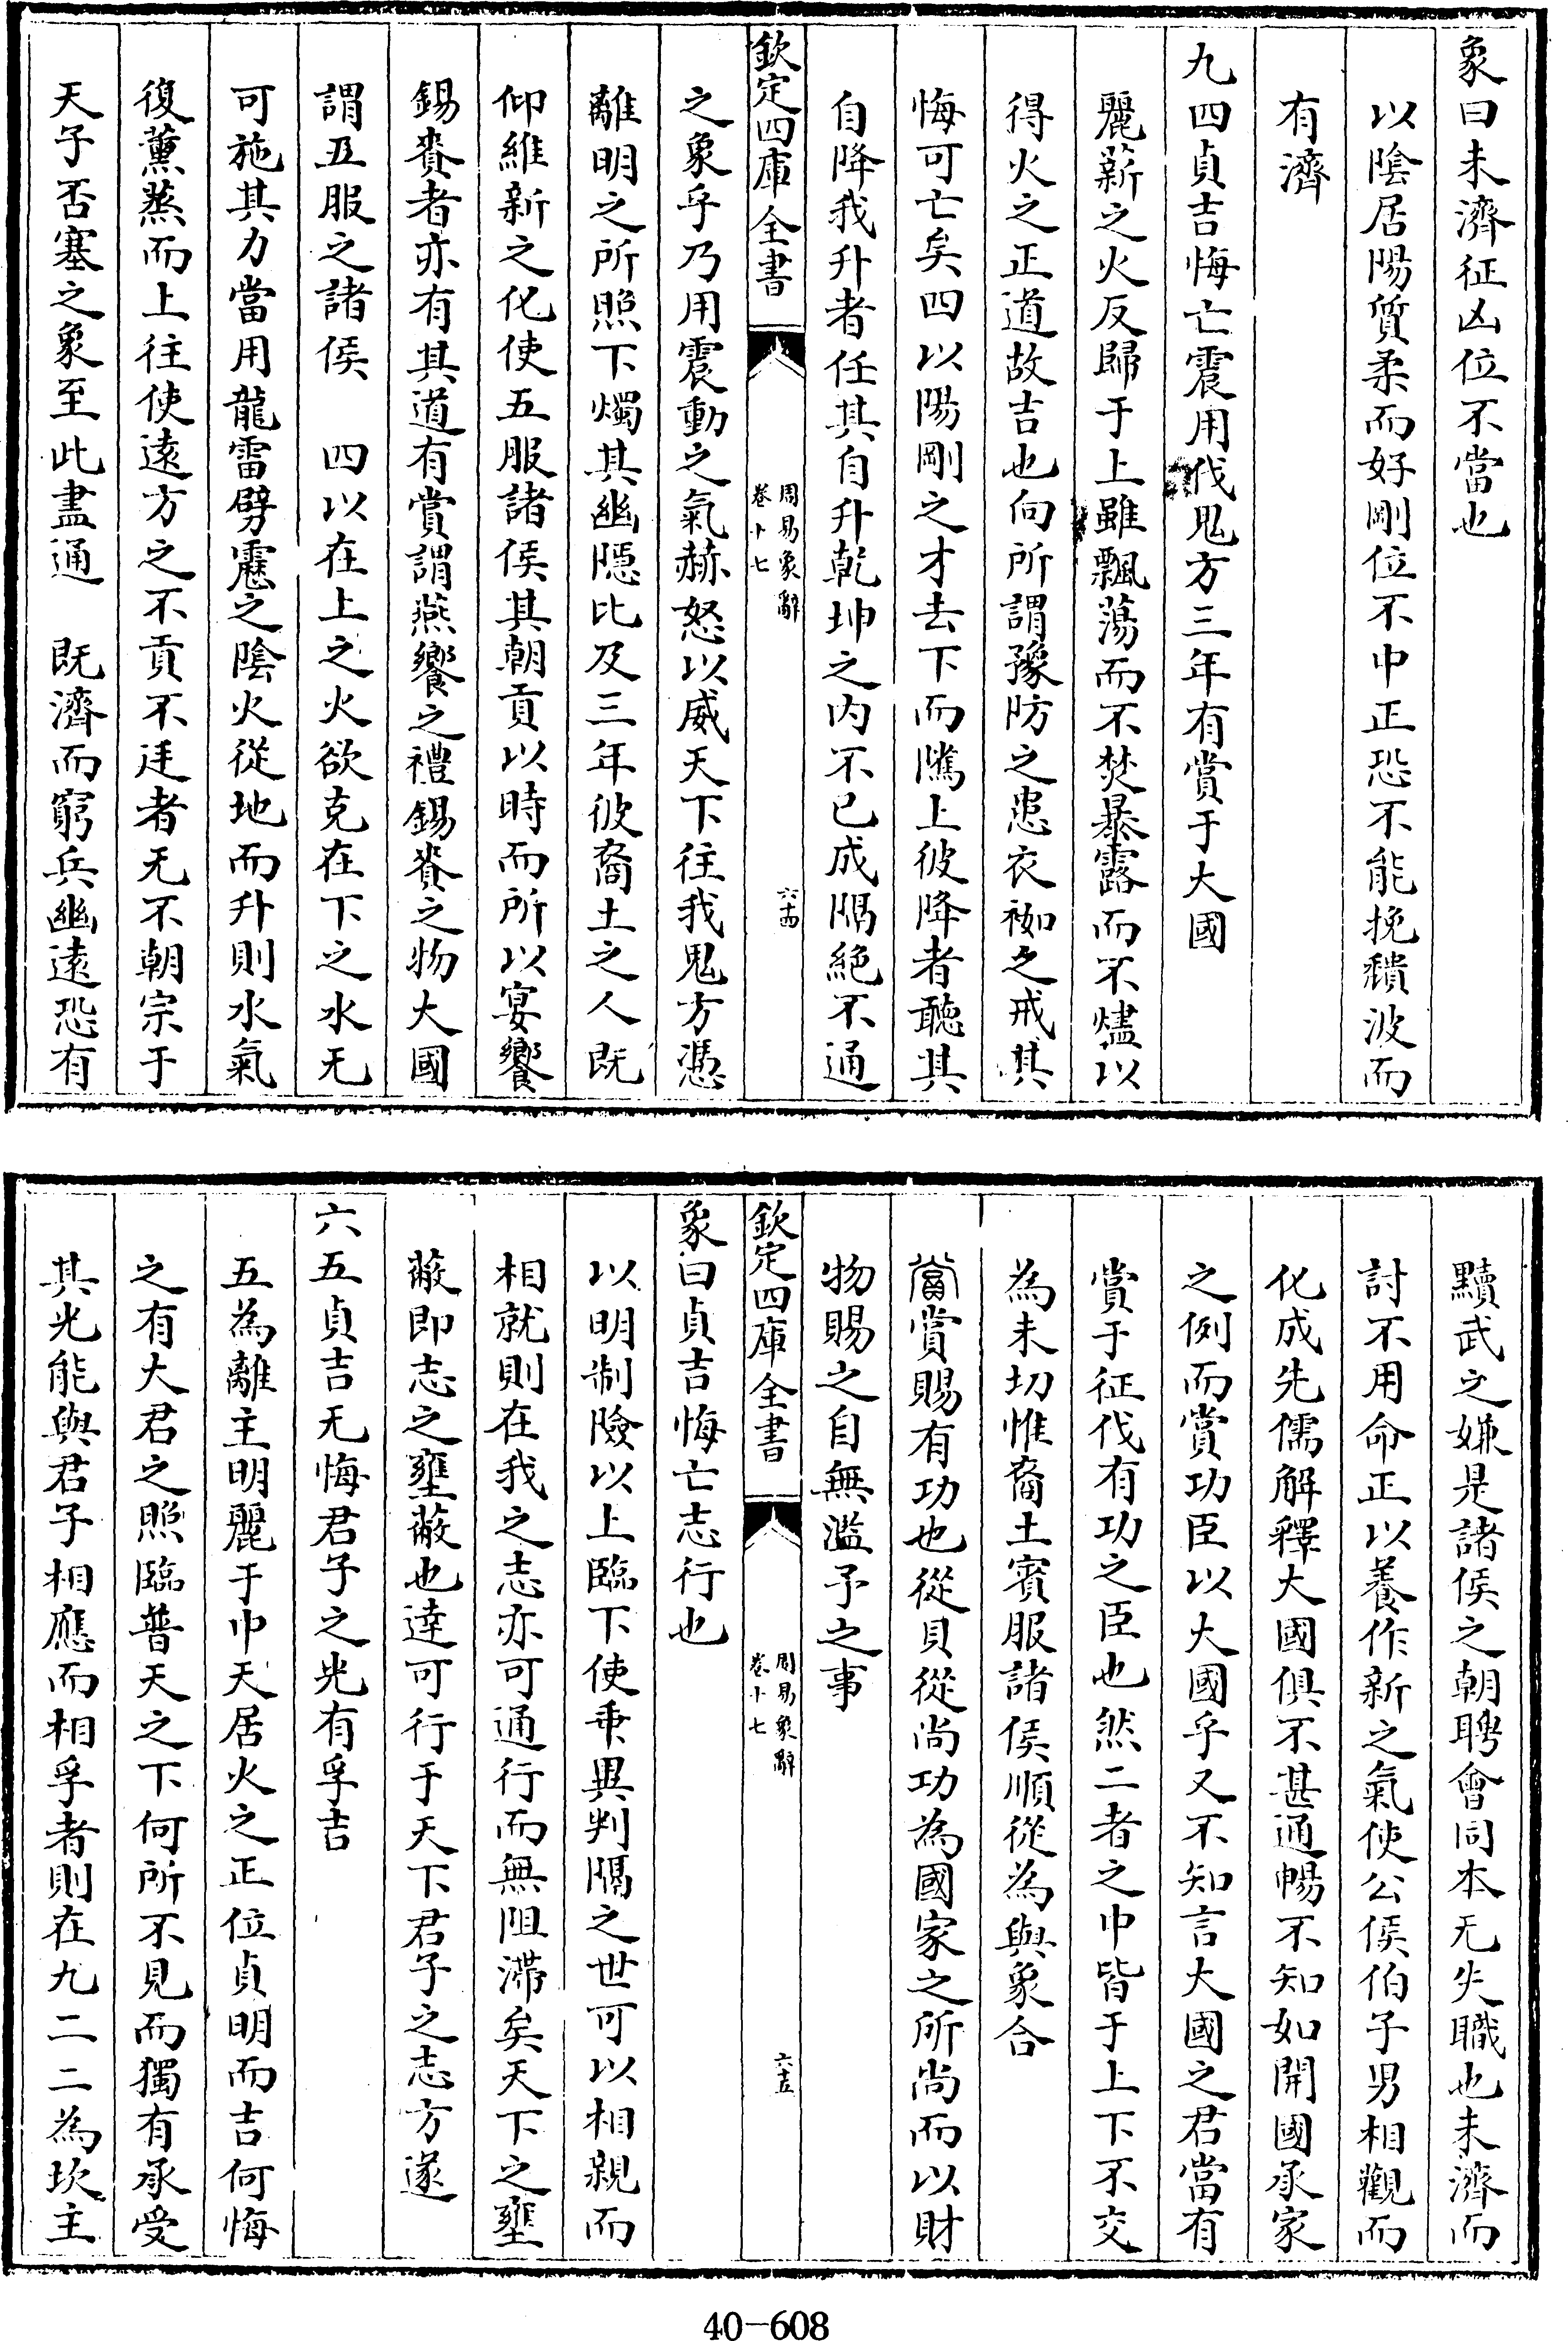 象曰未濟征凶位不當也
以陰居陽質柔而好剛位不中正恐不能挽頽波而
有濟
九四貞吉悔亡震用伐鬼方三年有賞于大國
麗薪之火反歸于上雖飄蕩而不焚暴露而不燼以
得火之正道故吉也向所謂豫防之患衣袽之戒其
悔可亡矣四以陽剛之才去下而騰上彼降者聽其
自降我升者任其自升乾坤之内不已成隔絶不通
欽定四庫全書
周易象辭
卷十七
六十四
之象乎乃用震動之氣赫怒以威天下往我鬼方憑
離明之所照下燭其幽隠比及三年彼裔土之人既
仰維新之化使五服諸侯其朝貢以時而所以宴饗
錫賚者亦有其道有賞謂燕饗之禮錫賚之物大國
謂五服之諸侯　四以在上之火欲克在下之水无
可施其力當用龍雷劈靂之陰火從地而升則水氣
復薰蒸而上往使遠方之不貢不廷者无不朝宗于
天子否塞之象至此盡通　既濟而窮兵幽遠恐有
黷武之嫌是諸侯之朝聘會同本无失職也未濟而
討不用命正以養作新之氣使公侯伯子男相觀而
化成先儒解釋大國俱不甚通暢不知如開國承家
之例而賞功臣以大國乎又不知言大國之君當有
賞于征伐有功之臣也然二者之中皆于上下不交
為未切惟裔土賓服諸侯順從為與象合
賞賜有功也從貝從尚功為國家之所尚而以財
物賜之自無濫予之事
欽定四庫全書
周易象辭
卷十七
六十五
象曰貞吉悔亡志行也
以明制險以上臨下使乖異判隔之世可以相親而
相就則在我之志亦可通行而無阻滯矣天下之壅
蔽即志之壅蔽也達可行于天下君子之志方遂
六五貞吉无悔君子之光有孚吉
五為離主明麗于中天居火之正位貞明而吉何悔
之有大君之照臨普天之下何所不見而獨有承受
其光能與君子相應而相孚者則在九二二為坎主
40-608